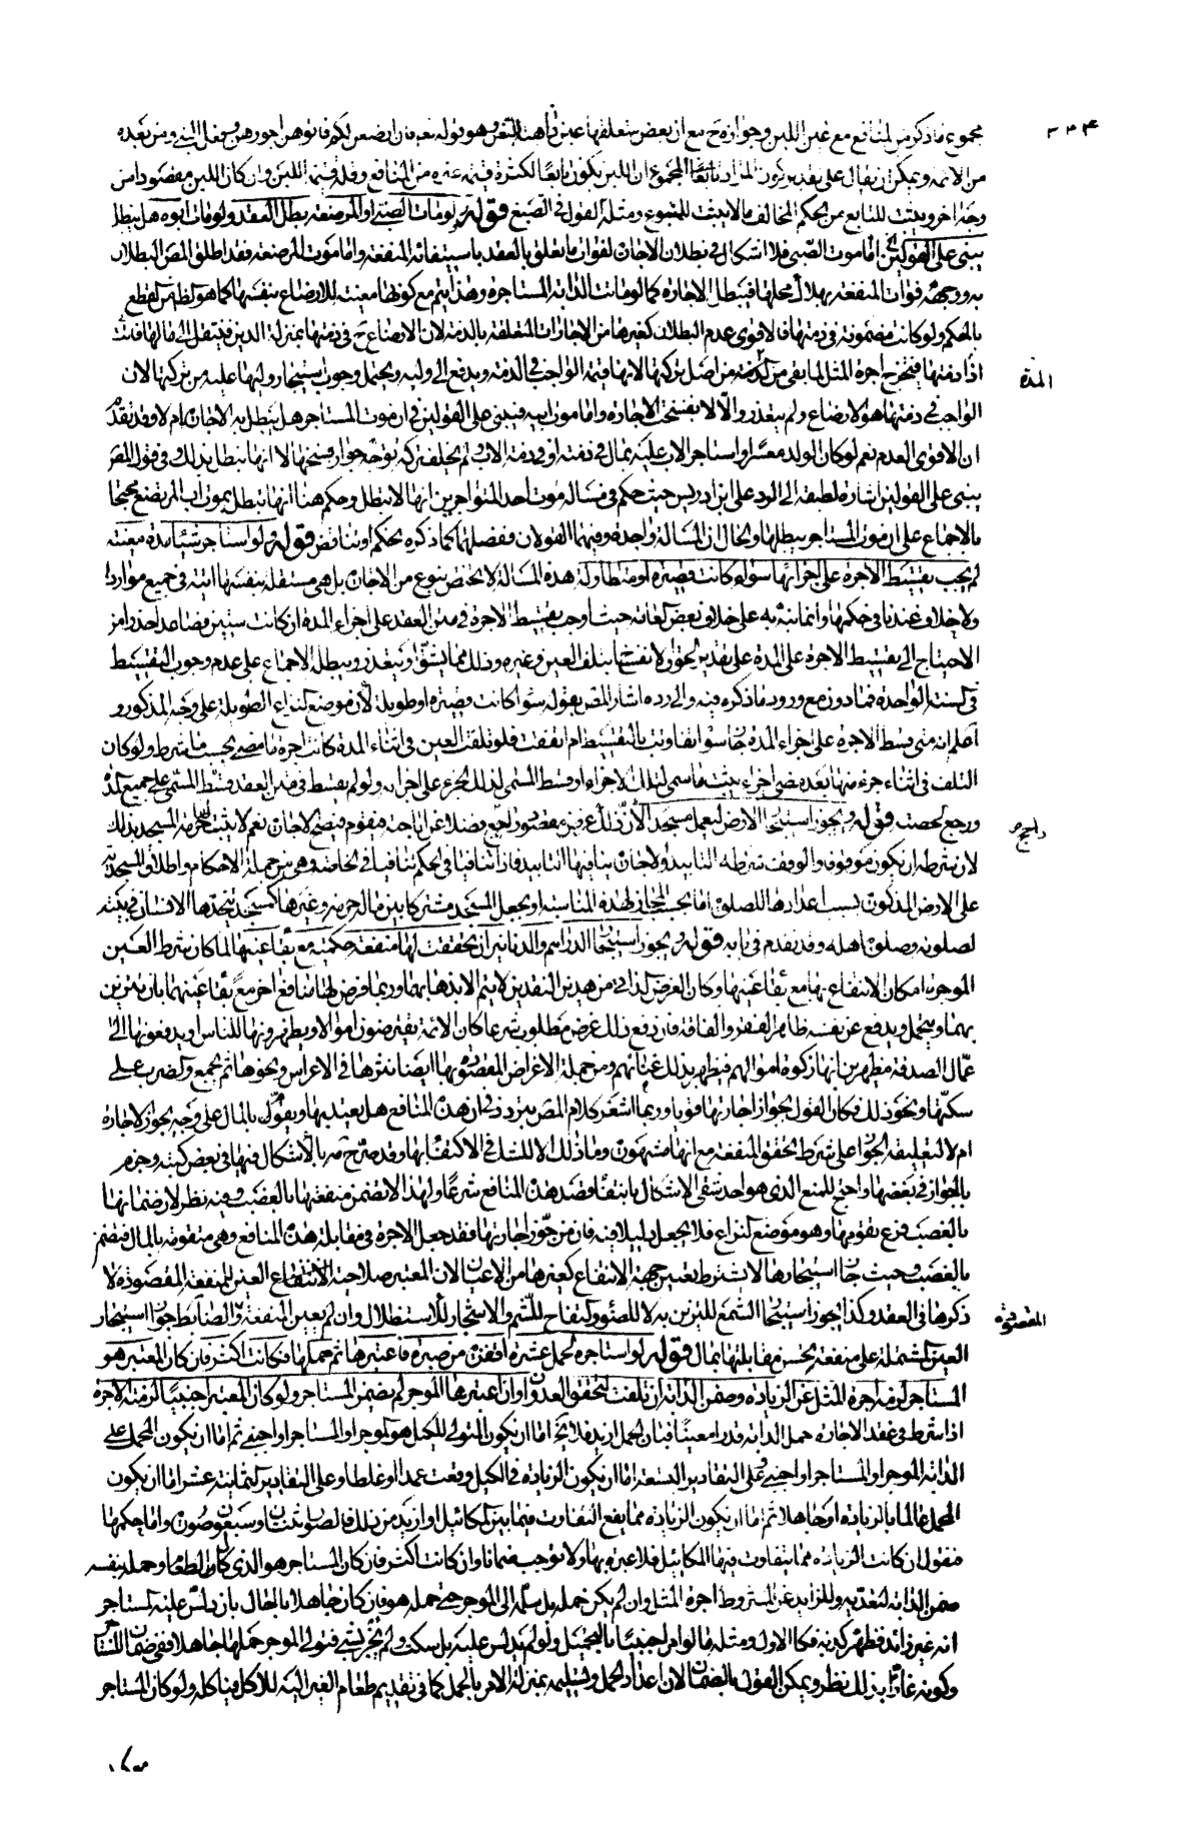 ٣٣٤
مجموع ما ذكر من المنافع مع غير اللبن وجوازه ح مع ان بعض متعلقها عين ثابت بالنص وهو قوله تعه فان ارضعن لكم فاتوهن اجورهن وفعل النبي ومن بعده
من الائمة ويمكن ان يقال على تقدير كون المراد تابعا المجموع ان اللبن يكون تابعا لكثرة قيمة غيره من المنافع وقلة قيمة اللبن وان كان اللبن مقصودا من
وجه اخر ويثبت للتابع من الحكم المخالف ما لا يثبت للمتبوع ومثله القول في الصبغ قوله ولو مات الصبي او المرضعة بطل العقد ولو مات ابوه هل يبطل
يبنى على القولين اما موت الصبي فلا اشكال في بطلان الاجارة لفوات ما يتعلق به العقد باستيفائه المنفعة واما موت المرضعة فقد اطلق المص البطلان
به ووجهه فوات المنفعة بهلاك محلها فتبطل الاجارة كما لو ماتت الدابة المستاجرة وهذا يتم مع كونها معينة للارضاع بنفسها كما هو الظاهر من القطع
بالحكم ولو كانت مضمونة في ذمتها فالاقوى عدم البطلان كغيرها من الاجارات المتعلقة بالذمة لان الارضاع ح في ذمتها بمنزلة الدين فينتقل الى مالها فات
اذا دفنتها فتخرج اجرة المثل لما بقي من الرضاعة من اصل تركتها لانها قيمة الواجب في الذمة ويدفع الى وليه ويحتمل وجوب استيجار وليها عليه من تركتها لان
المدة
الواجب في ذمتها هو الارضاع ولم يتعذر والا لانفسخت الاجارة واما موت ابيه فيبنى على القولين في ان موت المستاجر هل يبطل به الاجارة ام لا وقد تقدم
ان الاقوى العدم نعم لو كان الولد معسرا واستاجر الاب عليه بمال في ذمته او في ذمة الاب ولم يخلف تركة توجه جواز فسخها لا انها تبطل بذلك وفي قول المص
يبنى على القولين اشارة لطيفة الى الرد على ابن ادريس حيث حكم في مسالة موت احد المتواجرين انها لا تبطل وحكم هنا انها تبطل بموت اب المرتضع محتجا
بالاجماع على ان موت المستاجر يبطلها والحال ان المسالة واحدة وفيها القولان ففصلها كما ذكره تحكم او تناقض قوله ولو استاجر شيئا مدة معينة
لم يجب تقسيط الاجرة على اجزائها سواء كانت قصيرة او متطاولة هذه المسالة لا تختص بنوع من الاجارة بل هي مستقلة بنفسها اتية في جميع مواردها
ولا خلاف عندنا في حكمها وانما نبه به على خلاف بعض العامة حيث اوجب تقسيط الاجرة في متن العقد على اجزاء المدة ان كانت سنتين فصاعدا حذرا من
الاحتياج الى تقسيط الاجرة على المدة على تقدير لحوق الانفساخ بتلف العين وغيره وذلك مما يشق او يتعذر ويبطله الاجماع على عدم وجوب التقسيط
في السنة الواحدة فما دون مع ورود ما ذكره فيه والى رده اشار المص بقوله سواء كانت قصيرة او طويلة لان موضع النزاع الطويلة على وجه المذكور و
اعلم انه متى قسط الاجرة على اجزاء المدة جاز سواء تفاوتت بالتقسيط ام اتفقت فلو تلفت العين في اثناء المدة كانت اجرة ما مضى بحسب ما شرط ولو كان
التلف في اثناء جزء منها بعد مضي اجزاء يثبت ما سمي لتلك الاجزاء وقسط المسمى لذلك الجزء على اجزائه ولو لم يقسط في متن العقد قسط المسمى على جميع المدة
ورجع بحصته قوله ويجوز استيجار الارض ليعمل مسجدا لان ذلك غرض مقصود راجح فضلا عن اباحته متقوم فتصح الاجارة نعم لا يثبت لها حرمة المسجد بذلك
راجح
لان شرطه ان يكون موقوفا والوقف شرطه التابيد والاجارة ينافيها التابيد فاذا تنافيا في الحكم تنافيا في الخاصة وهي من جملة الاحكام واطلاق المسجد
على الارض المذكورة بسبب اعدادها للصلوة اما بحسب المجاز لهذه المناسبة او بجعل المسجد مشتركا بين ماله حرمة وغيرها كمسجد يتخذه الانسان في بيته
لصلوته وصلوة اهله وقد تقدم في بابه قوله ويجوز استيجار الدراهم والدنانير ان تحققت لها منفعة حكمية مع بقاء عينها لما كان شرط العين
الموجرة امكان الانتفاع بها مع بقاء عينها وكان الغرض الذاتي من هذين النقدين لا يتم الا بذهابهما وربما فرض لهما منافع اخر مع بقاء عينهما بان يتزين
بهما ويتجمل ويدفع عن نفسه ظاهر الفقر والفاقة فان دفع ذلك غرض مطلوب شرعا كان الائمة يقترضون اموالا ويظهرونها للناس او يدفعونها الى
عمال الصدقة مظهرين انها زكوة اموالهم فيظهر بذلك غناهم ومن جملة الاغراض المقصودة بها ايضا نثرها في الاعراس ونحوها ثم يجمع والضرب على
سكتها ونحو ذلك فكان القول بجواز اجارتها قويا وربما اشعر كلام المص بتردد في ان هذه المنافع هل يعتد بها ويقول بالمال على وجه يجوز الاجارة
ام لا لتعليقه الجواز على شرط تحقق المنفعة مع انها مشهورة وما ذلك الا للشك في الاكتفاء بها وقد صرح ره بالاشكال فيها في بعض كتبه وجزم
بالجواز في بعضها واحتج للمنع الذي هو احد شقي الاشكال بانتفاء قصد هذه المنافع شرعا ولهذا لا تضمن منفعتها بالغصب وفيه نظر لان ضمانها
بالغصب فرع تقومها وهو موضع النزاع فلا يجعل دليلا فيه فان من جوز اجارتها فقد جعل الاجرة في مقابلة هذه المنافع وهي متقومة بالمال فتضمن
بالغصب وحيث جاز استيجارها لا يشترط تعيين جهة الانتفاع كغيرها من الاعيان لان المعتبر صلاحية الانتفاع العين للمنفعة المقصودة لا
ذكرها في العقد وكذا يجوز استيجار الشمع للتزين به لا للضوء والتفاح للشم والاشجار للاستظلال وان لم يعين المنفعة والضابط جواز استيجار
المقصودة
العين المشتملة على منفعة يحسن مقابلتها بمال قوله لو استاجره لحمل عشرة اقفزة من صبرة فاعتبرها ثم حملها فكانت اكثر فان كان المعتبر هو
المستاجر لزمه اجرة المثل عن الزيادة وضمن الدابة ان تلفت لتحقق العدوان وان اعتبرها الموجر لم يضمن المستاجر ولو كان المعتبر اجنبيا لزمته الاجرة
اذا شرط في عقد الاجارة حمل الدابة قدرا معينا فبان الحمل ازيد فلا يخ اما ان يكون المتولي للكيل هو الموجر او المستاجر او اجنبي ثم اما ان يكون المحمل على
الدابة الموجر او المستاجر او اجنبي فعلى التقادير التسعة اما ان يكون الزيادة في الكيل وقعت عمدا او غلطا وعلى التقادير الثمانية عشر اما ان يكون
المحمل عالما بالزيادة او جاهلا ثم اما ان يكون الزيادة مما يقع التفاوت فيها بين المكائيل او ازيد من ذلك فالصور اثنتان وسبعون صورة واما حكمها
فنقول ان كانت الزيادة مما يتفاوت فيها المكائيل فلا عبرة بها ولا توجب ضمانا وان كانت اكثر فان كان المستاجر هو الذي كال الطعام وحمله بنفسه
ضمن الدابة لتعديه وللزايد عن المشروط اجرة المثل وان لم يكن حمله بل سلمه الى الموجر حتى حمله هو فان كان جاهلا بالحال بان دلس عليه المستاجر
انه غير زائد فظهر كذبه فكالاول ومثله ما لو امر اجنبيا بالتحميل ولو لم يدلس عليه بل سكت ولم يخبر بشيء فتولى الموجر حملها جاهلا ففي ضمان المستاجر
وكونه غارا بذلك نظر ويمكن القول بالضمان لان اعداد الحمل وتسليمه بمنزلة الامر بالحمل كما في تقديم طعام الغير اليه للاكل فياكله ولو كان المستاجر